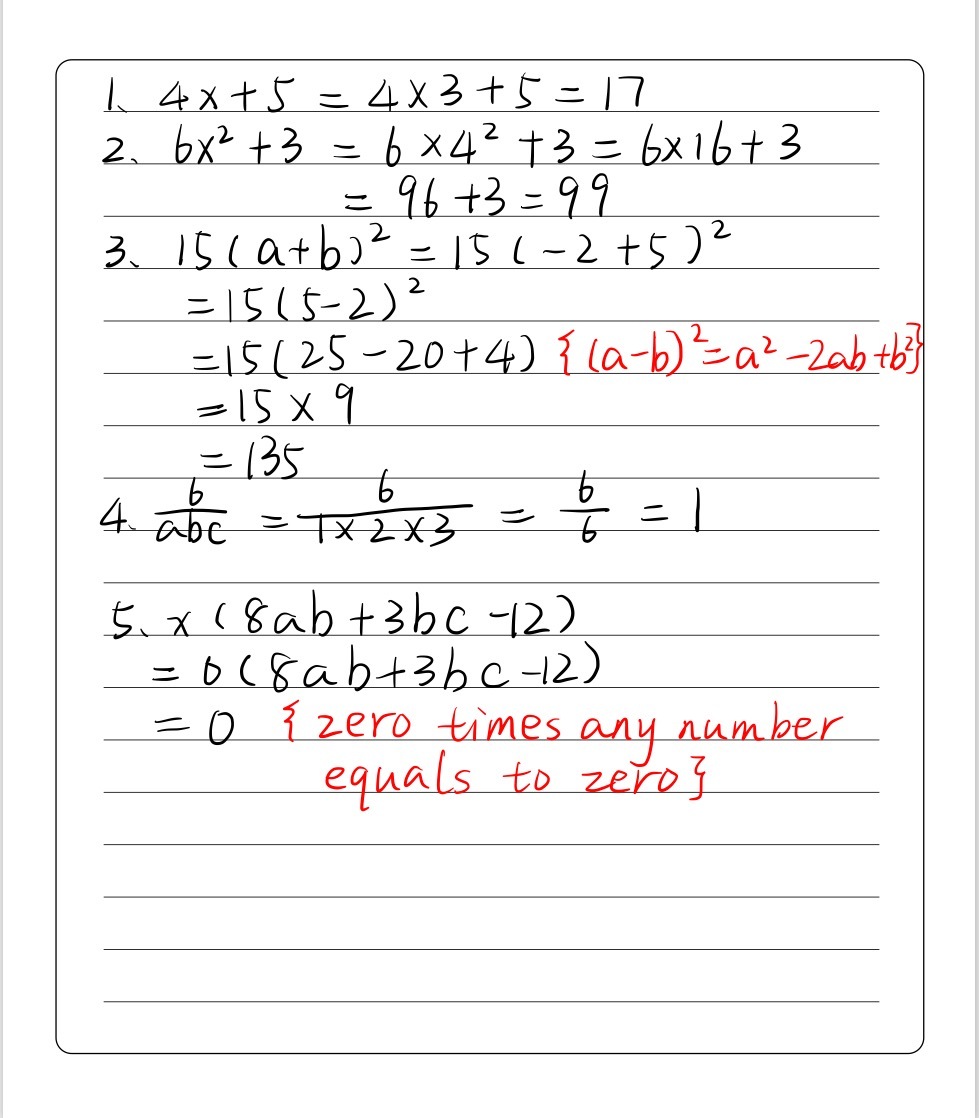 1、4x+5 = 4×3+5 = 17
2、6x² +3 = 6 ×4² +3 = 6×16+3
= 96 +3 = 99
3、15(a+b)² = 15(-2+5)²
= 15(5-2)²
= 15(25-20+4) {(a-b)²=a²-2ab+b²}
= 15 × 9
= 135
4、6/abc = 6/1×2×3 = 6/6 = 1
5、x(8ab+3bc-12)
= 0(8ab+3bc-12)
= 0 {zero times any number
equals to zero}